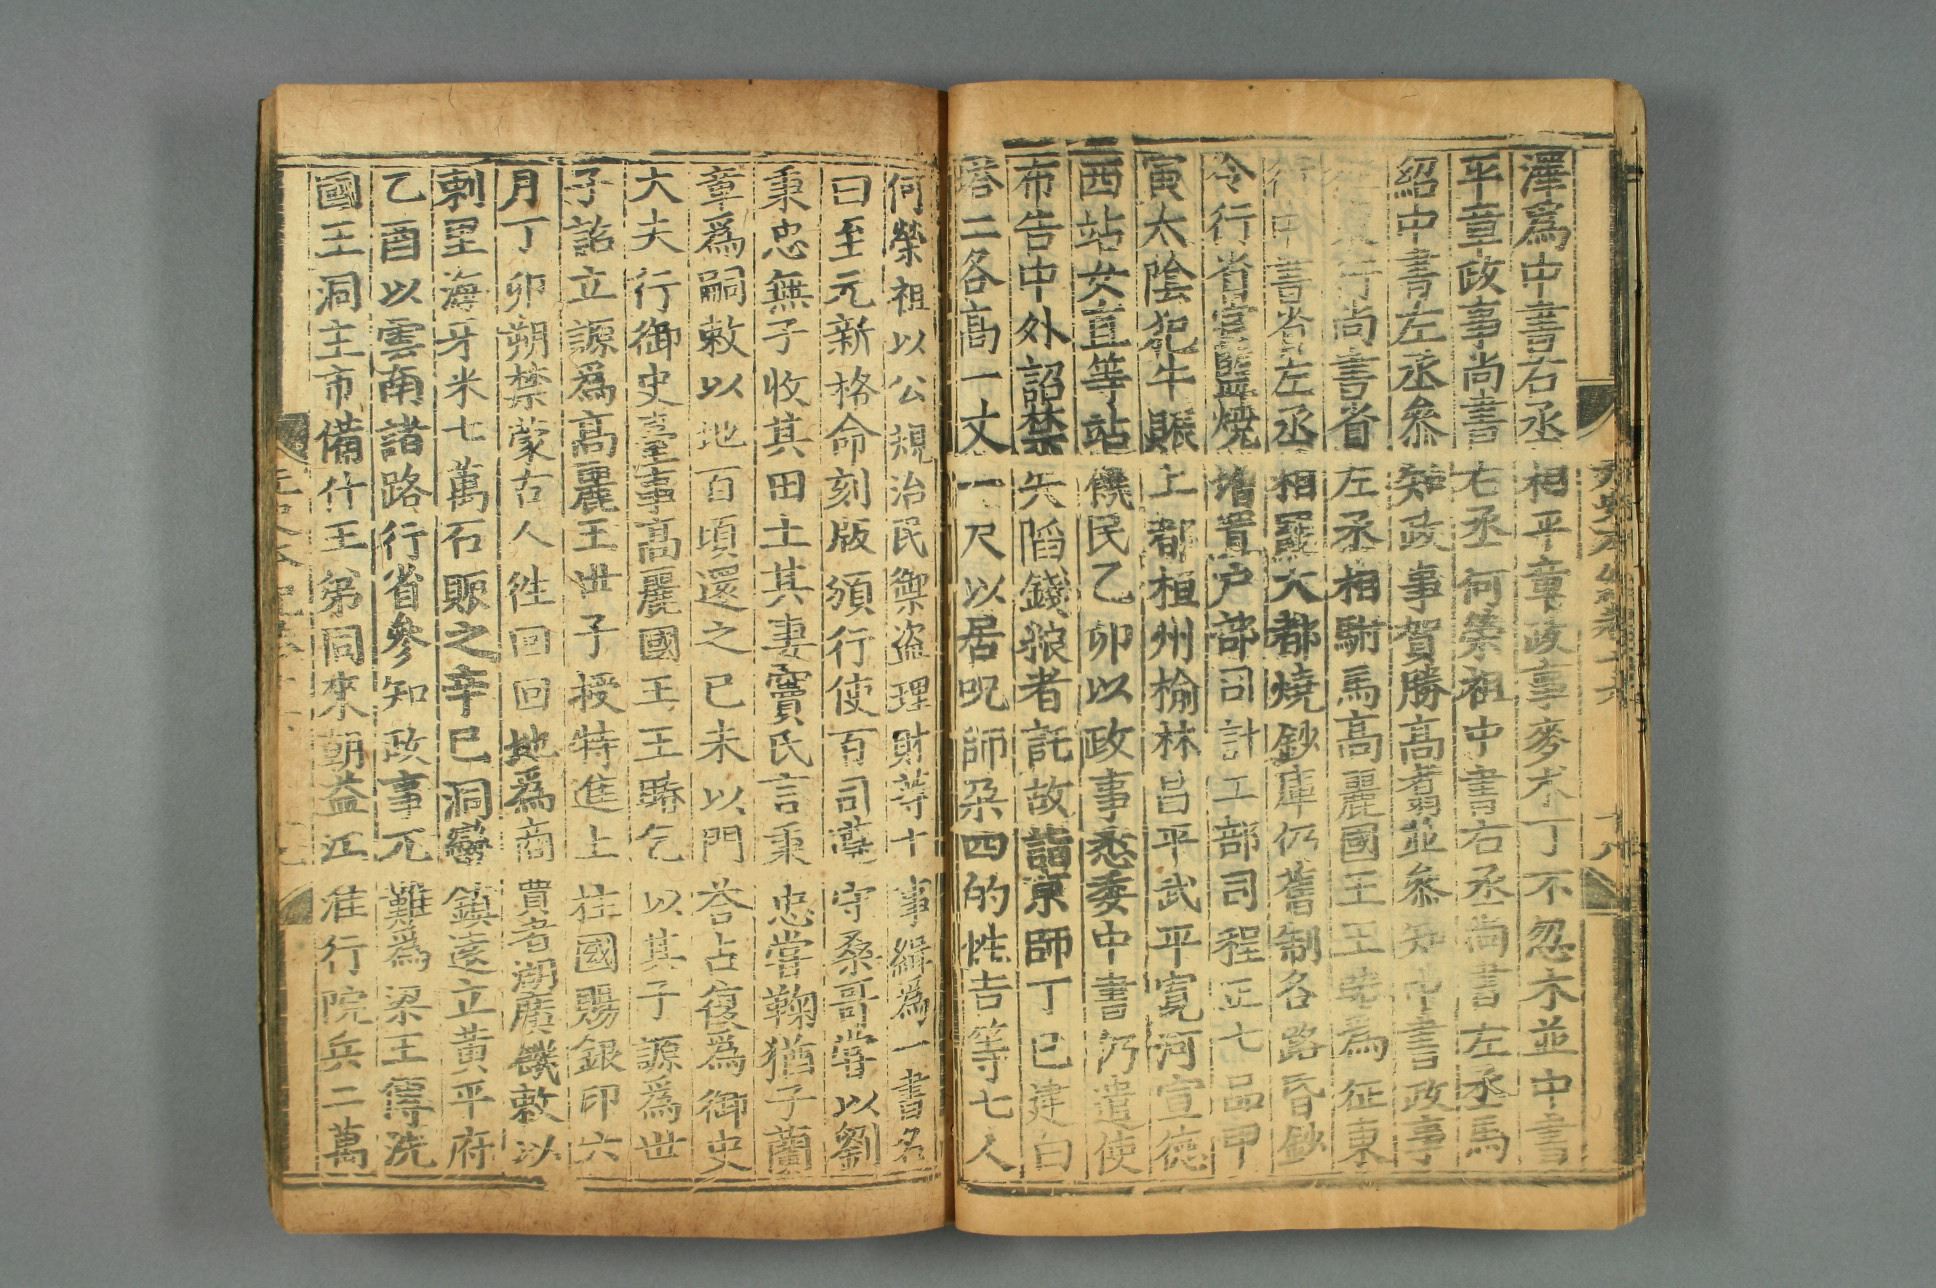 澤為中書右丞相平章政事麥朮丁不忽木並中書
平章政事尚書右丞何榮祖中書右丞尚書左丞馬
紹中書左丞參知政事賀勝高翥並參知中書政事
行尚書省左丞相駙馬高麗國王王為征東
行中書省左丞相罷大都燒鈔庫仍舊制各路昏鈔
令行省官監燒增置戶部司計工部司程正七品甲
寅太陰犯牛賑上都桓州榆林昌平武平寬河宣德
西站女直等站饑民乙卯以政事悉委中書仍遣使
布告中外詔禁失陷錢粮者託故詣京師丁巳建白
塔二各高一丈一尺以居呪師朶四的性吉等七人
何榮祖以公規治民禦盜理財等十事緝為一書名
曰至元新格命刻版頒行使百司遵守桑哥嘗以劉
秉忠無子收其田土其妻竇氏言秉忠嘗鞠猶子蘭
章為嗣敕以地百頃還之己未以門荅占復為御史
大夫行御史臺事高麗國王王賰乞以其子謜為世
子詔立謜為高麗王世子授特進上柱國賜銀印六
月丁卯朔禁蒙古人徃回回地為商賈者湖廣饑敕以
剌里海牙米七萬石賑之辛巳洞蠻鎮遠立黃平府
乙酉以雲南諸路行省參知政事兀難為梁王傅洗
國王洞主市備什王弟同來朝益江淮行院兵二萬